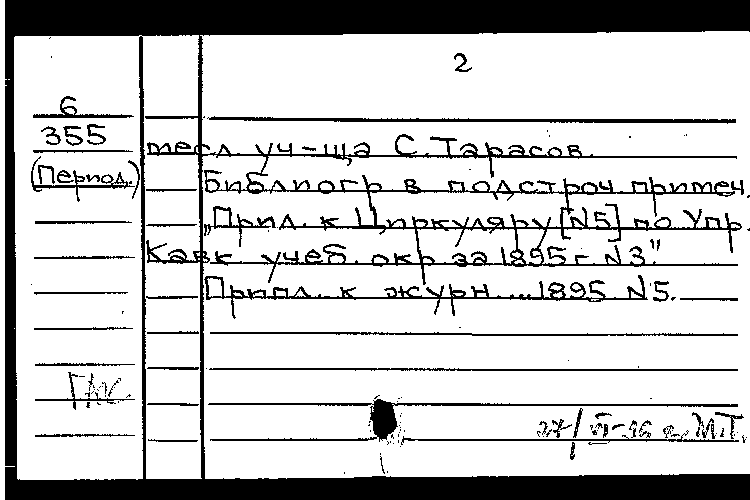 2
6
355
(Период.)
тесл. уч-ща С. Тарасов.
Библиогр в подстроч. примеч.
„Прил. к Циркуляру [N5] по Упр.
Кавк. учеб. окр. за 1895 г. N3."
Прил. к журн ... 1895. N5.
27/VI-36 г. М.Т.